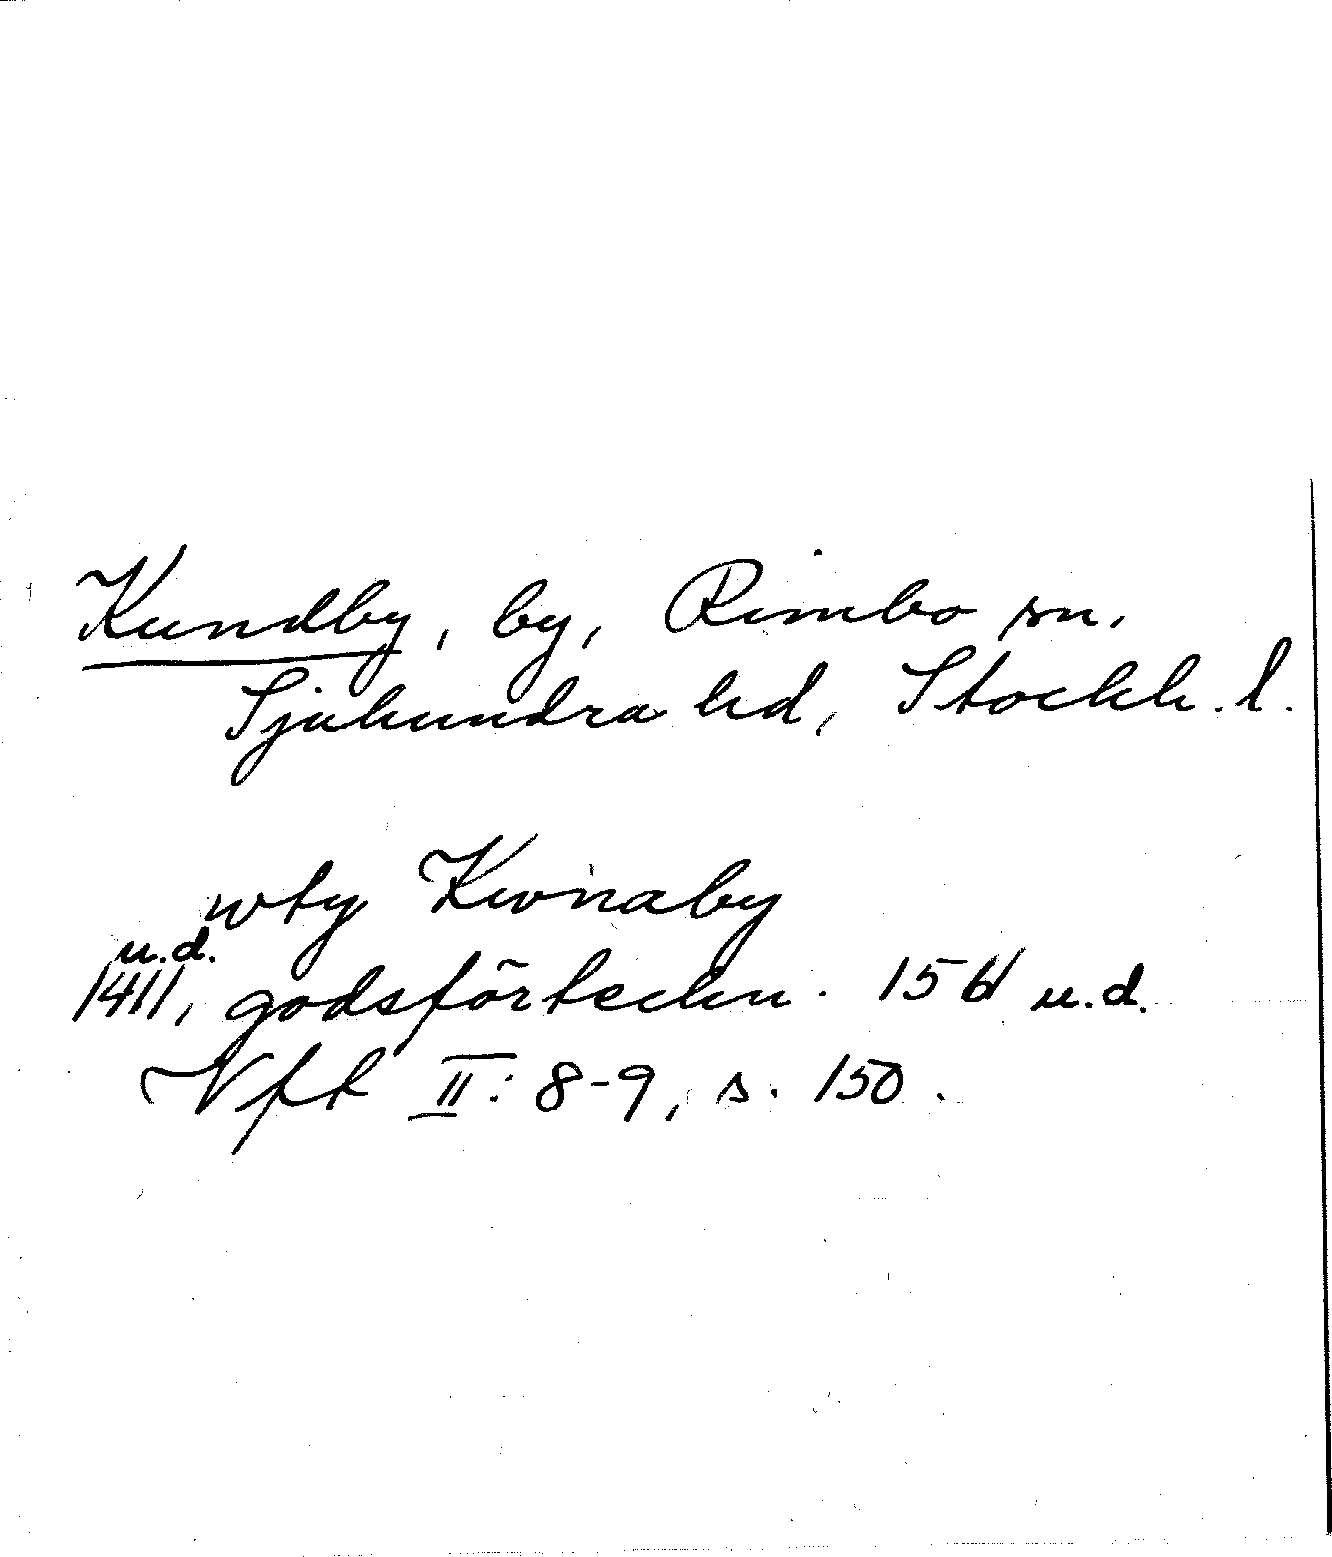 Kundby, by, Rimbo sn.
Sjuhundra hd, Stockh. l.
wty Kwnaby
u.d.
1411, godsförteckn. u.d.
Vft II: 8-9, s. 150.